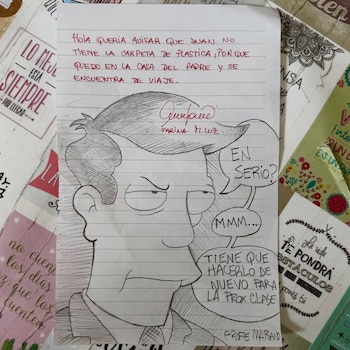 HOLA QUERÍA AVISAR QUE JUAN NO
TIENE LA CARPETA DE PLASTICA, PORQUE
QUEDO EN LA CASA DEL PADRE Y SE
ENCUENTRA DE VIAJE.
FARINA M. LUZ
EN
SERIO?
MMM...
TIENE QUE
HACERLO DE
NUEVO PARA
LA PROX CLASE
PROFE MARIANO
LO MEJOR
ESTÁ
SIEMPRE
POR LLEGAR
no cuentes
los días
haz que los
cuenten
La vida
TE PONDRÁ
OBSTÁCULOS